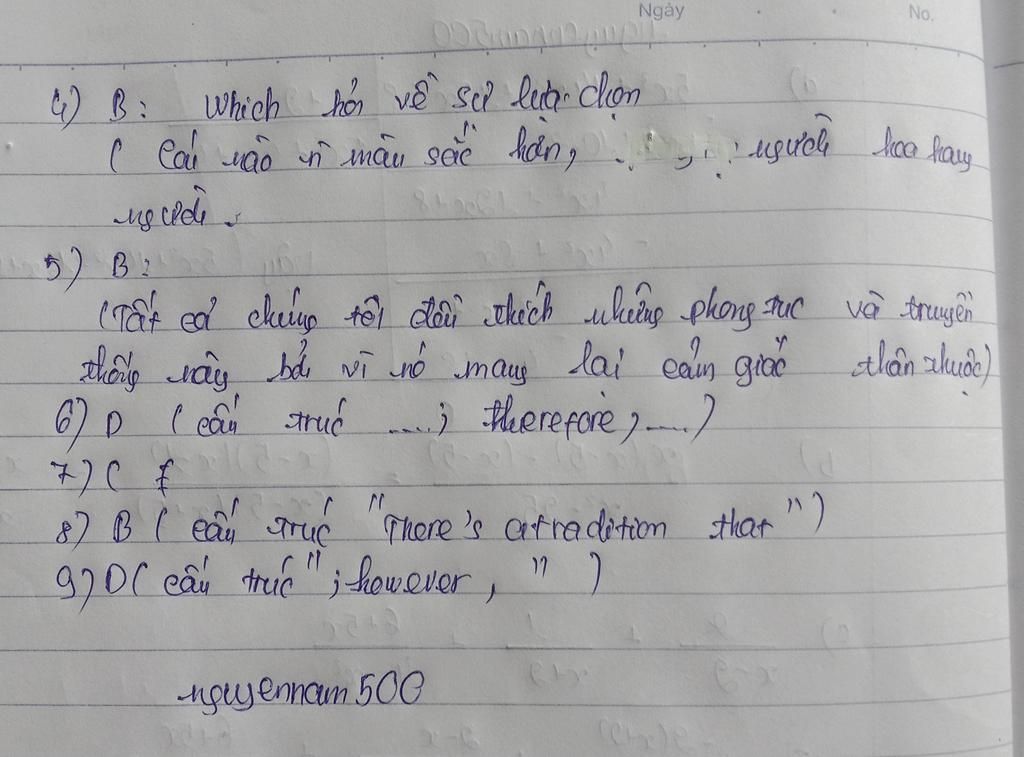 Ngày No.
4) B: Which hỏi về sự lựa chọn
( Cái nào vì màu sắc hơn, người hoa hay
người
5) B:
(Tất cả chúng tôi đều thích những phong tục và truyền
thống này bởi vì nó mang lại cảm giác thân thuộc)
6) D ( cấu trúc ....; therefore, ....)
7) C
8) B ( cấu trúc "There's a tradition that")
9) D( cấu trúc "; however, " )
nguyennam500